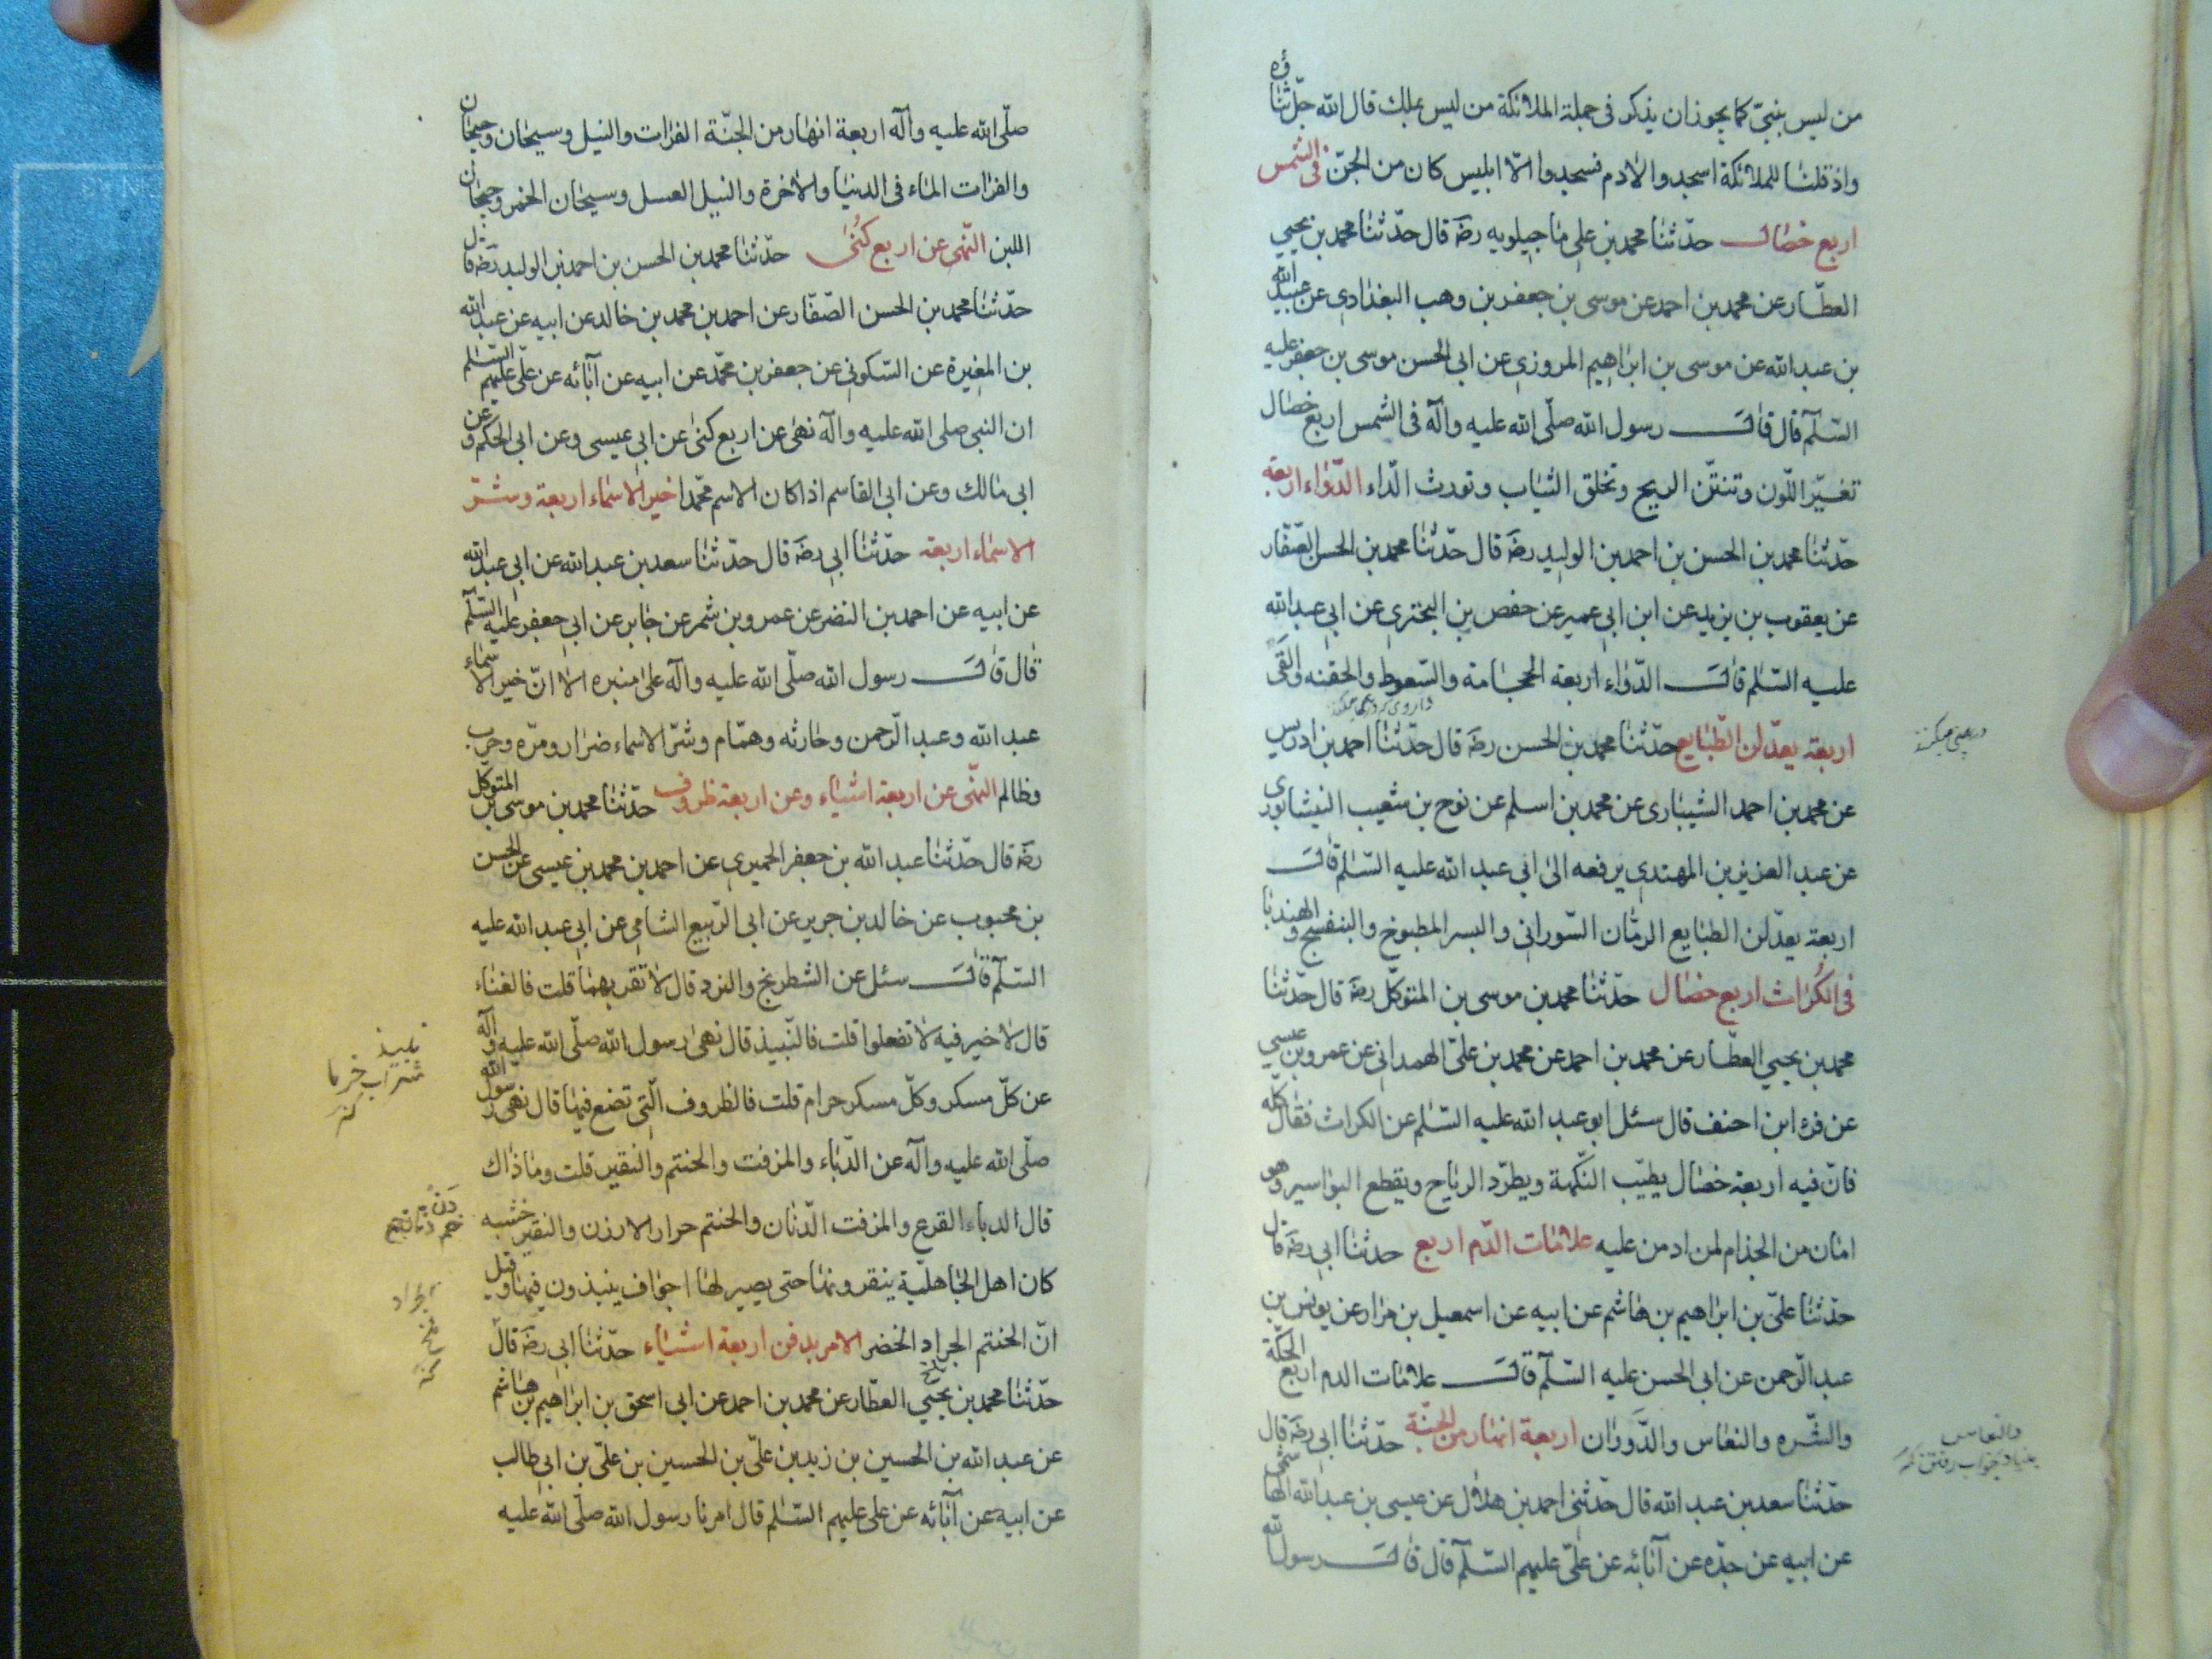 من ليس بنبيّ كما يجوز ان يذكر فى جملة الملائكة من ليس بملك قال الله جلّ ثناؤه
واذ قلنا للملائكة اسجدوا لادم فسجدوا الّا ابليس كان من الجنّ فى الشمس
اربع خصال حدّثنا محمد بن على ماجيلويه رضه قال حدّثنا محمد بن يحيي
العطّار عن محمد بن احمد عن موسى بن جعفر بن وهب البغدادي عن عبيد الله
بن عبد الله عن موسى بن ابراهيم المروزي عن ابى الحسن موسى بن جعفر عليه
السّلم قال قال رسول الله صلّى الله عليه وآله فى الشمس اربع خصال
تغيّر اللّون وتنتّن الريح وتخلق الثياب وتورث الدّاء الدّواء اربعة
حدّثنا محمد بن الحسن بن احمد بن الوليد رضه قال حدّثنا محمد بن الحسن الصّفّار
عن يعقوب بن يزيد عن ابن ابي عمير عن حفص بن البختري عن ابي عبد الله
عليه السّلم قال الدّواء اربعة الحجامة والسّعوط والحقنه والقى
اربعة يعدّلن الطّبايع حدّثنا محمد بن الحسن رضه قال حدّثنا احمد بن ادريس
عن محمد بن احمد الشيبارى عن محمد بن اسلم عن نوح بن شعيب النيشابورى
عن عبد العزيز بن المهتدي يرفعه الى ابي عبد الله عليه السّلم قال
اربعة يعدّلن الطبايع الرمّان السّوراني والبسر المطبوخ والبنفسج والهندبا
فى الكُراث اربع خصال حدّثنا محمد بن موسى بن المتوكّل رضه قال حدّثنا
محمد بن يحيي العطّار عن محمد بن احمد عن محمد بن علىّ الهمداني عن عمرو بن عيسي
عن فره ابن احنف قال سئل ابو عبد الله عليه السّلم عن الكراث فقال كله
فانّ فيه اربعة خصال يطيّب النّكهة ويطرّد الرياح ويقطع البواسير وهو
امان من الجذام لمن ادمن عليه علامات الدّم اربع حدثنا ابي رضه قال
حدّثنا علىّ بن ابراهيم بن هاشم عن ابيه عن اسمعيل بن مرار عن يونس بن
عبد الرّحمن عن ابى الحسن عليه السّلم قال علامات الدم اربع الحكّة
والبثره والنعاس والدّوران اربعة انهار من الجنّة حدّثنا ابي رضه قال
حدّثنا سعد بن عبد الله قال حدّثنى احمد بن هلال عن عيسى بن عبد الله الهاشمى
عن ابيه عن جدّه عن آبائه عن علىّ عليهم السّلم قال قال رسول الله
والنعاس
صلّى الله عليه وآله اربعة انهار من الجنّة الفرات والنيل وسيحان وجيحان
والفرات الماء فى الدنيا والاخرة والنيل العسل وسيحان الخمر وجيحان
اللبن النّهى عن اربع كُنىٰ حدّثنا محمد بن الحسن بن احمد بن الوليد رضه قال
حدّثنا محمد بن الحسن الصّفّار عن احمد بن محمد بن خالد عن ابيه عن عبد الله
بن المغيرة عن السّكوني عن جعفر بن محمّد عن ابيه عن آبائه عن علىّ عليهم السّلم
ان النبى صلى الله عليه وآله نهى عن اربع كنى عن ابي عيسى وعن ابى الحكم وعن
ابى مالك وعن ابى القاسم اذا كان الاسم محمّدا خير الاسماء اربعة وشرّ
الاسماء اربعة حدّثنا ابي رضه قال حدّثنا سعد بن عبد الله عن ابي عبد الله
عن ابيه عن احمد بن النضر عن عمرو بن شمر عن جابر عن ابي جعفر عليه السّلم
قال قال رسول الله صلّى الله عليه وآله على منبره الا انّ خير الاسماء
عبد الله وعبد الرّحمن وحارثه وهمّام وشرّ الاسماء ضرار ومرّه وحرب
وظالم النهى عن اربعة اشياء وعن اربعة ظروف حدّثنا محمد بن موسى بن المتوكّل
رضه قال حدّثنا عبد الله بن جعفر الحميري عن احمد بن محمد بن عيسى عن الحسن
بن محبوب عن خالد بن جرير عن ابى الرّبيع الشامي عن ابي عبد الله عليه
السّلم قال سئل عن الشطرنج والنرد قال لا تقربهما قلت فالغناء
قال لا خير فيه لا تفعلوا قلت فالنّبيذ قال نهى رسول الله صلّى الله عليه وآله
عن كلّ مسكر وكلّ مسكر حرام قلت فالظروف الّتى تضع فيها قال نهى رسول الله
صلّى الله عليه وآله عن الدّباء والمزفت والحنتم والنقير قلت وما ذاك
قال الدباء القرع والمزفت الدّنان والحنتم حرار الارزن والنقير خشبه
كان اهل الجاهليّة ينقرونها حتى يصير لها اجواف ينبذون فيها وقيل
انّ الحنتم الجراد الخضر الامر بدفن اربعة اشياء حدّثنا ابي رضه قال
حدّثنا محمد بن يحيي العطّار عن محمد بن احمد عن ابى اسحق بن ابراهيم بن هاشم
عن عبد الله بن الحسين بن زيد بن علىّ بن الحسين بن علىّ بن ابي طالب
عن ابيه عن آبائه عن على عليهم السّلم قال امرنا رسول الله صلّى الله عليه
نبيذ
شراب خرما